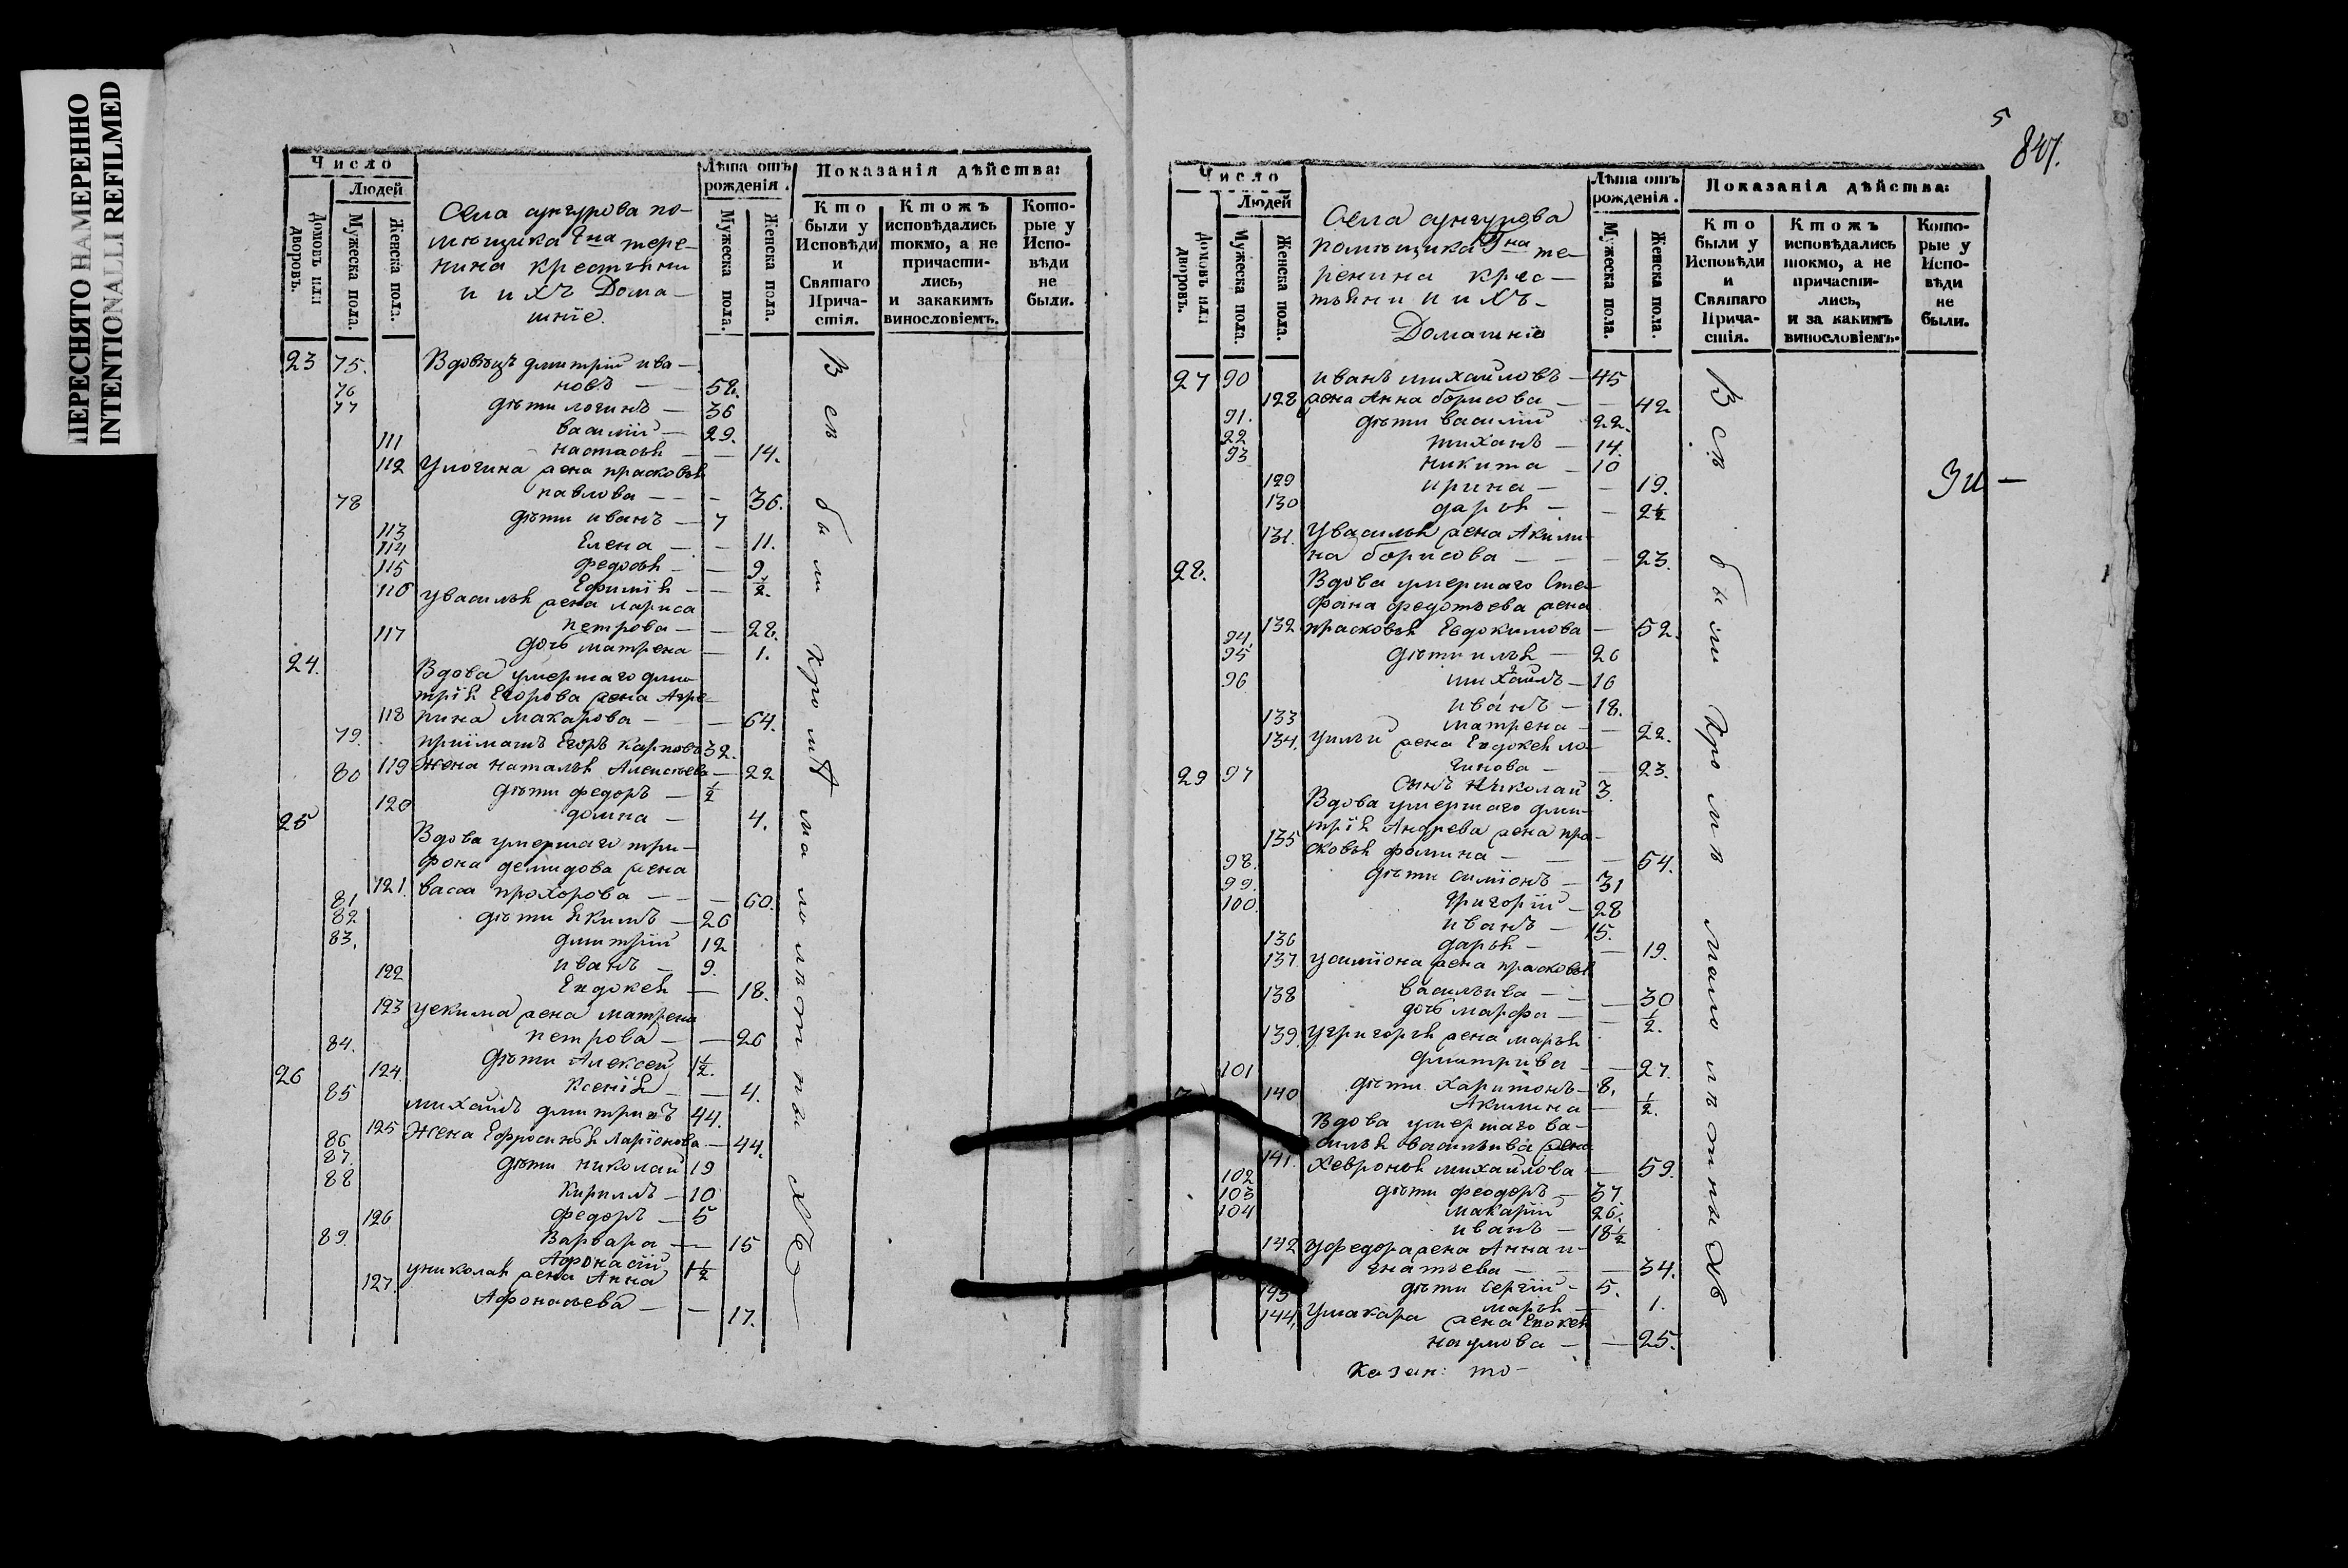 ПЕРЕСНЯТО НАМЕРЕННО
INTENTIONALLI REFILMED
Число
Людей
Домовъ или дворовъ.
Мужеска пола.
Женска пола.
Села аунгурова по-
мѣщика Гна тере-
нина крестьяни
и ихъ Дома-
шніе.
Лѣта отъ рожденія.
Мужеска пола.
Женска пола.
Показанія дѣйства:
Кто были у Исповѣди и Святаго Прича-стія.
Ктожъ исповѣдались токмо, а не причасти-лись, и закакимъ винословіемъ.
Кото-рые у Испо-вѣди не были.
23 75. Вдовецъ дмитрій ива-
76 новъ — 58.
77 дѣти логинъ — 36
василій — 29.
111 настасья — — 14.
112 Улогина жена прасковья
павлова — — — 36.
78 дѣти иванъ — 7
113 Елена — — 11.
114 федосья — — 9
115 Ефимія — — ½.
116 увасилья жена лариса
петрова — — 28.
117 дочь матрена — 1.
24. Вдова умершаго дми-
трія Егорова жена Агре-
118 пина макарова — — 64.
79. пріимышъ Егоръ карповъ 32.
119 Жена наталья Алексѣева — 22
80 дѣти федоръ — ½
120 домна — 4.
25 Вдова умершаго три-
фона демидова жена
121. васса прохорова — — — 60.
81 дѣти якимъ — 26
82 дмитрій 12
83. иванъ — 9.
122 Евдокея — 18.
123 уекима жена матрена
петрова — — 26
84. дѣти Алексей 1½.
124. Ксенія — — 4.
26 85 михаилъ дмитріевъ 44.
125 Жена Ефросинья ларіонова — 44.
86 дѣти николай 19
87. кирилъ — 10
88 федоръ — 5
126 Варвара — — 15
89. Афонасій 1½
127. униколая жена Анна
Афонасьева — — 17.
Всѣ были кромѣ малолѣтныхъ
5
847.
Число
Людей
Домовъ или дворовъ.
Мужеска пола.
Женска пола.
Села аунгурова
помѣщика Гна те-
ренина крес-
тьяни и ихъ-
Домашніе
Лѣта отъ рожденія.
Мужеска пола.
Женска пола.
Показанія дѣйства:
Кто были у Исповѣди и Святаго Прича-стія.
Ктожъ исповѣдались токмо, а не причасти-лись, и за какимъ винословіемъ.
Кото-рые у Испо-вѣди не были.
27 90 иванъ михайловъ — 45
128 жена Анна борисова — — 42
91. дѣти василій 22.
92 тиханъ — 14.
93 никита — 10
129 ирина — — 19.
130 дарья — — 2½
131. Увасилья жена Акили-
на борисова — — 23.
28. Вдова умершаго Сте-
фана федотьева жена
132 прасковья Евдокимова — 52.
94. дѣти илья — 26
95 михаилъ — 16
96 иванъ — 18.
133 матрена — — 22.
134. уильи жена Евдокея ло-
гинова — — 23.
29 97 Сынъ николай 3.
Вдова умершаго дми-
трія Андрева жена пра-
135 сковья фомина — — — 54.
98. дѣти симіонъ — 31
99. григорій — 28
100. иванъ — 15.
136 дарья — — 19.
137 усиміона жена прасковья
васильива — — — 30
138 дочь марфа — — ½.
139. Угригорія жена марья
дмитрива — — 27.
101 дѣти харитонъ — 8.
140 Акилина — ½.
Вдова умершаго ва-
силья васильива жена
141. хевронья михайлова — 59.
102 дѣти феодоръ — 37.
103 макарій 26.
104 иванъ — 18½
142 уфедора жена Анна и-
гнатьева — — — 34.
дѣти Сергій — 5.
143 марья — 1.
144. Умакара жена Евокея
наумова — — 25.
Всѣ были кромѣ малолѣтныхъ
Казан: то-